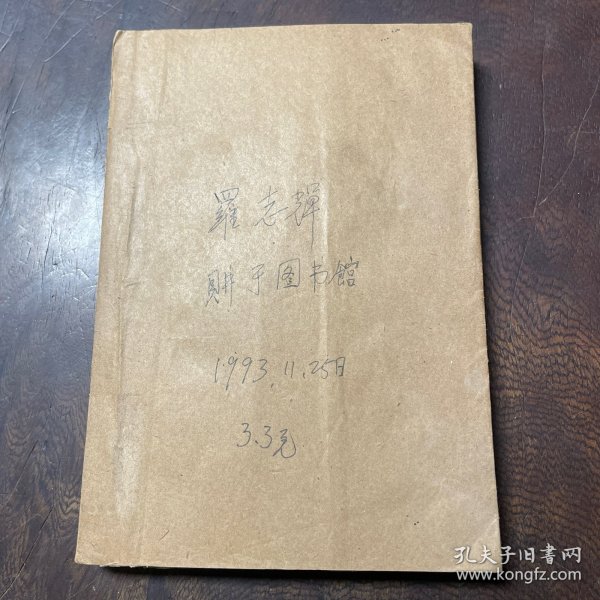 羅志輝
购于图书館
1993.11.25日
3.3元
孔夫子旧書网
www.kongfz.com